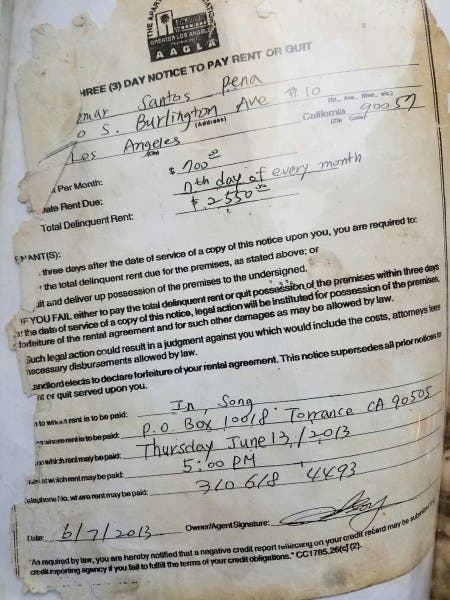 THE APAR
GREATER LOS ANGELES
AAGLA
HREE (3) DAY NOTICE TO PAY RENT OR QUIT
emar Santos Pena
o S. Burlington Ave #10
(Address) (St., Ave., Blvd., etc.)
Los Angeles California 90057
(City) (Zip Code)
Per Month: $ 700.00
ate Rent Due: nth day of every month
Total Delinquent Rent: $ 2550.00
NANT(S):
three days after the date of service of a copy of this notice upon you, you are required to:
the total delinquent rent due for the premises, as stated above; or
uit and deliver up possession of the premises to the undersigned.
IF YOU FAIL either to pay the total delinquent rent or quit possession of the premises within three days
er the date of service of a copy of this notice, legal action will be instituted for possession of the premises,
forfeiture of the rental agreement and for such other damages as may be allowed by law.
Such legal action could result in a judgment against you which would include the costs, attorneys fees
necessary disbursements allowed by law.
andlord elects to declare forfeiture of your rental agreement. This notice supersedes all prior notices to
nt or quit served upon you.
to whom rent is to be paid: In, Song
where rent is to be paid: P.O. Box 10018 Torrance CA 90505
which rent may be paid: Thursday June 13, / 2013
at which rent may be paid: 5:00 PM
Telephone No. where rent may be paid: 310 618 4493
Date: 6/7/2013 Owner/Agent Signature:
"As required by law, you are hereby notified that a negative credit report reflecting on your credit record may be submitted
credit reporting agency if you fail to fulfill the terms of your credit obligations." CC1785.26(c)(2).